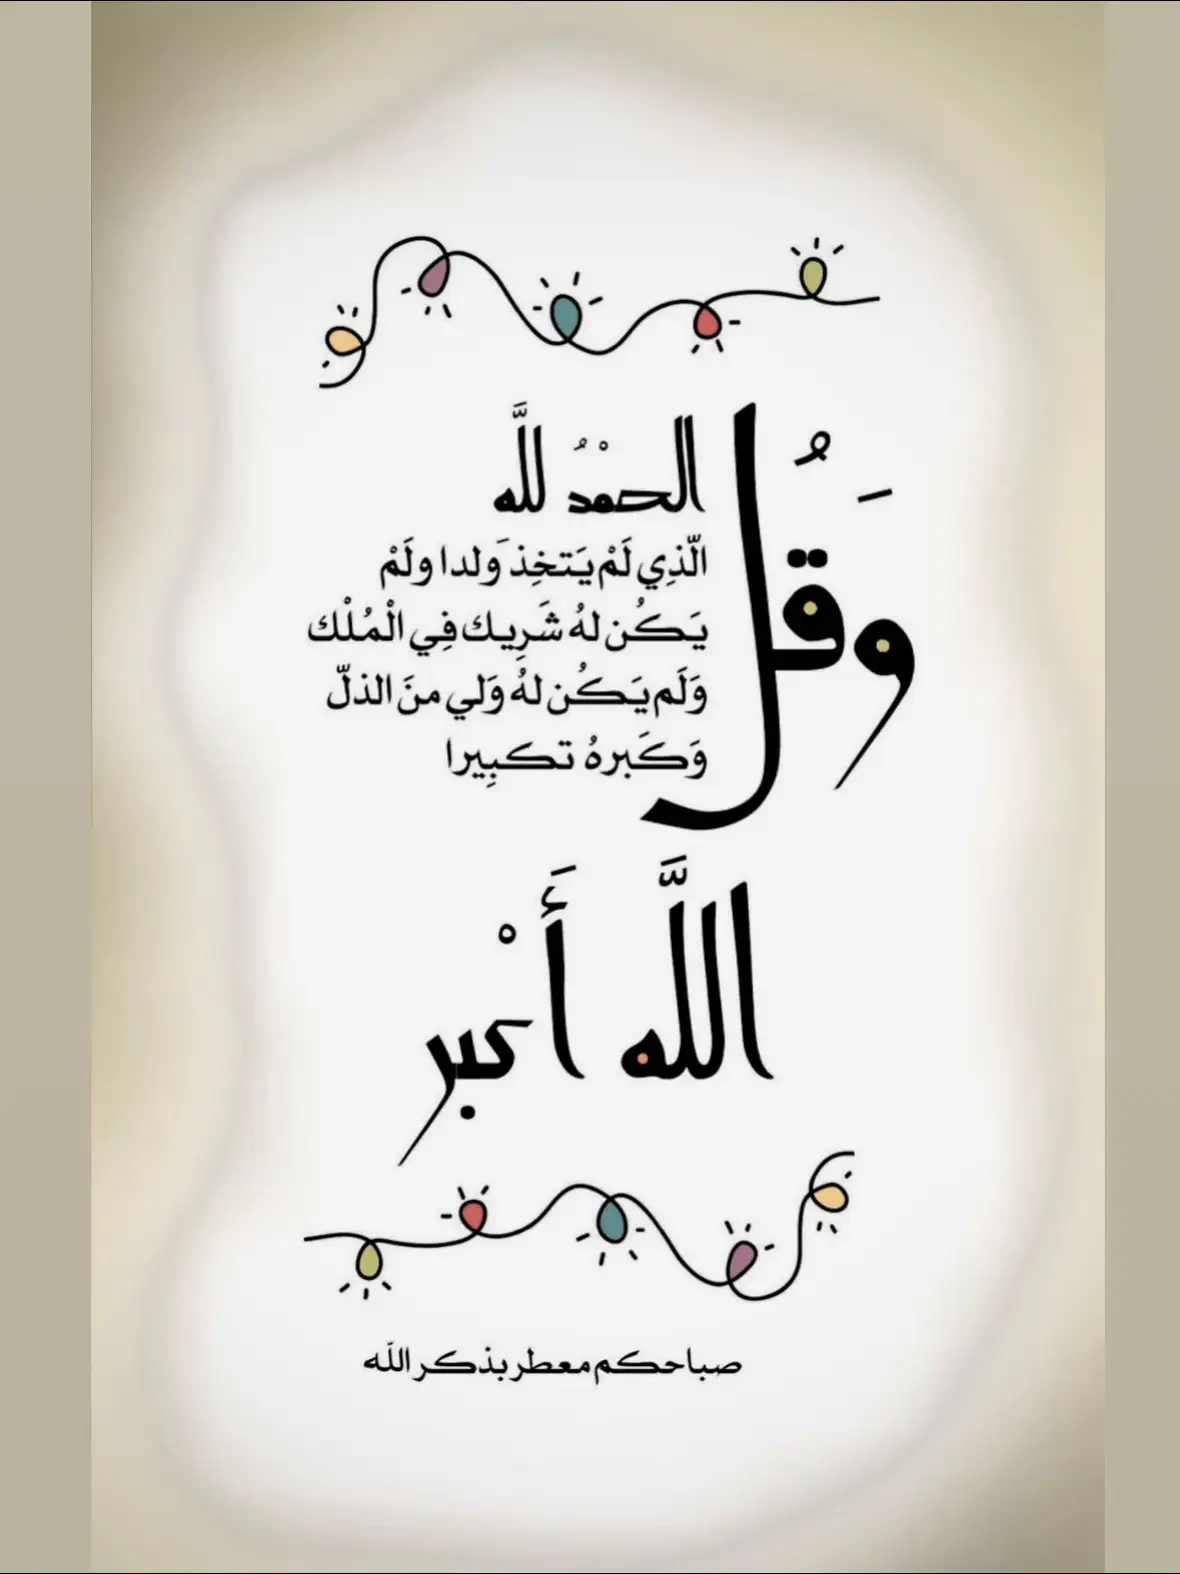 وَقُل
الحمْدُ للَّه
الّذِي لَمْ يَتخِذ َولدا ولَمْ
يَكُن لهُ شَرِيك فِي الْمُلْك
وَلَم يَكُن لهُ وَلي منَ الذلّ
وَكَبرهُ تكبِيرا
اللَّه أَكْبر
صباحكم معطر بذكر الله